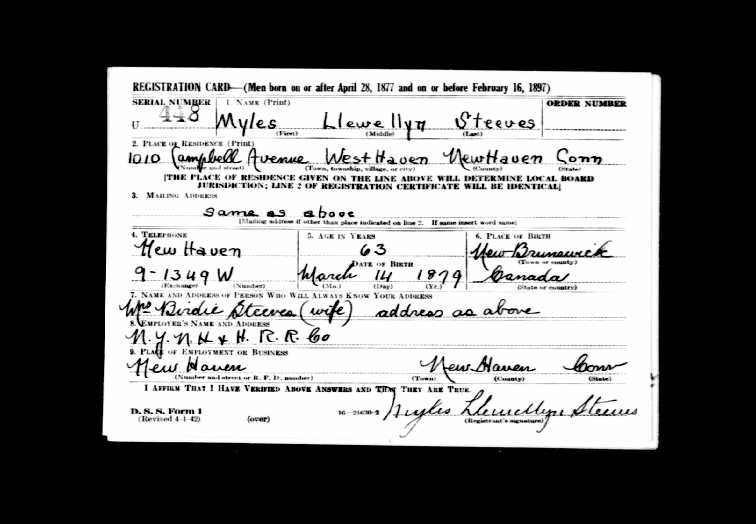 REGISTRATION CARD—(Men born on or after April 28, 1877 and on or before February 16, 1897)
SERIAL NUMBER 1. NAME (Print) ORDER NUMBER
U 448 Myles Llewellyn Steeves
(First) (Middle) (Last)
2. PLACE OF RESIDENCE (Print)
1010 Campbell Avenue West Haven New Haven Conn
(Number and street) (Town, township, village, or city) (County) (State)
[THE PLACE OF RESIDENCE GIVEN ON THE LINE ABOVE WILL DETERMINE LOCAL BOARD
JURISDICTION; LINE 2 OF REGISTRATION CERTIFICATE WILL BE IDENTICAL]
3. MAILING ADDRESS
Same as above
[Mailing address if other than place indicated on line 2. If same insert word same]
4. TELEPHONE 5. AGE IN YEARS 6. PLACE OF BIRTH
New Haven 63 New Brunswick
DATE OF BIRTH (Town or county)
9-1349W March 14 1879 Canada
(Exchange) (Number) (Mo.) (Day) (Yr.) (State or country)
7. NAME AND ADDRESS OF PERSON WHO WILL ALWAYS KNOW YOUR ADDRESS
Mrs Birdie Steeves (wife) address as above
8. EMPLOYER'S NAME AND ADDRESS
N.Y.N.H & H. R.R. Co
9. PLACE OF EMPLOYMENT OR BUSINESS
New Haven New Haven Conn
(Number and street or R. F. D. number) (Town) (County) (State)
I AFFIRM THAT I HAVE VERIFIED ABOVE ANSWERS AND THAT THEY ARE TRUE.
D. S. S. Form 1 Myles Llewellyn Steeves
(Revised 4-1-42) (over) 16—21630-2 (Registrant's signature)